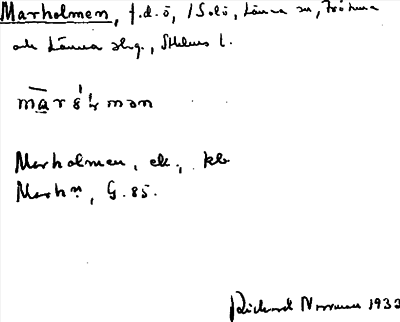 Marholmen, f.d. ö, i Solö, Länna sn, Frötuna
och Länna skg., Sthlms l.
Marholmen, ek., kb
Marh:n, G. 85.
Richard Norrman 1932